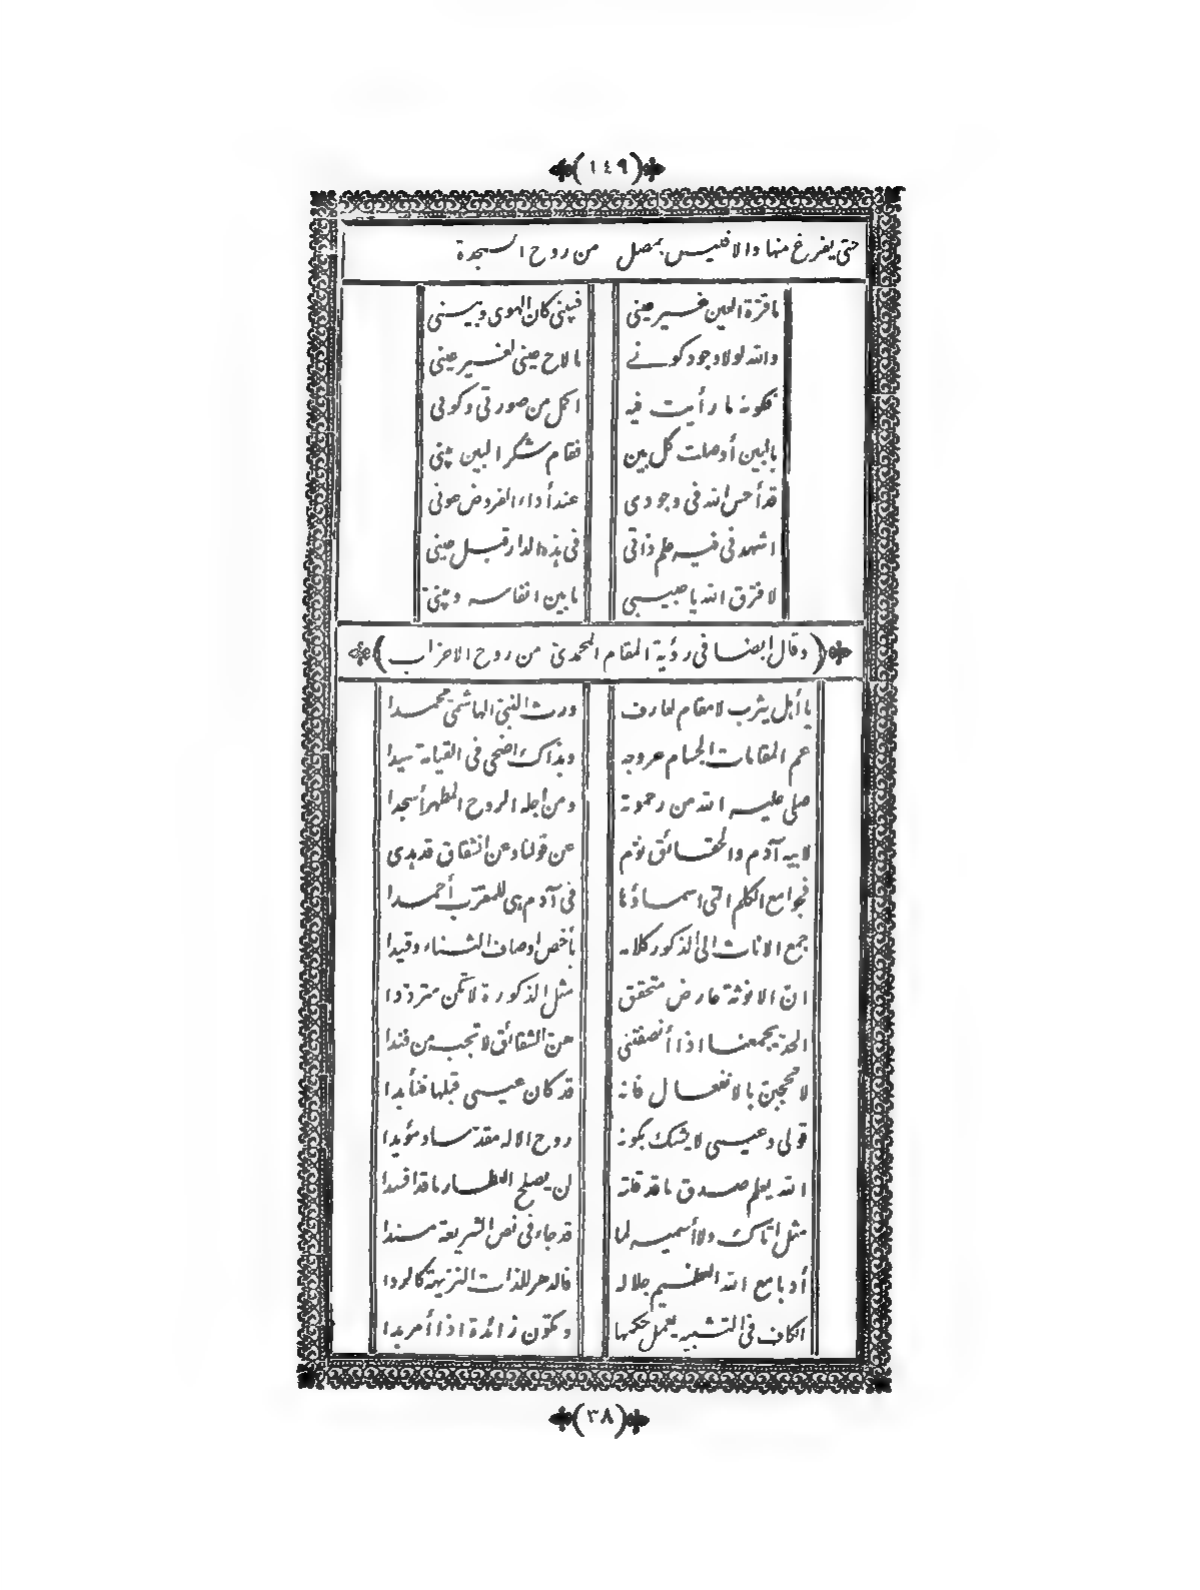 (١٤٩)
حتى يفرغ منها والا فليس بمصل من روح السجدة
ما قرّة العين غير عيني فبيني كان الهوى وبيني
والله لولا وجود كوني ما لاح عيني لغير عيني
فكونه ما رأيت فيه اكمل من صورتي وكوني
بالبين أوصلت كل بين فقام شكر البين بيني
قد أحسن الله في وجودي عند أداء الفروض عوني
اشهدني فيه علم ذاتي في هذه الدار قبل حيني
لا فرّق الله يا حبيبي ما بين انفاسه وبيني
(وقال ايضا في رؤية المقام المحمدي من روح الاحزاب)
يا أهل يثرب لا مقام لعارف ورث النبيّ الهاشميّ محمدا
عم المقامات الجسام عروجه وبذاك اضحى في القيامة سيدا
صلى عليه الله من رحموته ومن اجله الروح المطهر أسجدا
لابيه آدم والحقائق نوّم عن قولنا وعن انشقاق قد هدى
فجوامع الكلم التي اسماؤها في آدم هي للمقرّب أحمدا
جمع الاناث الى الذكور كلامه بأخص اوصاف الثناء وقيدا
انّ الانوثة عارض متحقق مثل الذكورة لا تكن متردّدا
الحدّ يجمعنا اذا أنصفتني هنّ الشقائق لا تجب من فندا
لا تحجبنّ بالانفعال فانه قد كان عيسى قبلها فتأيدا
قولي وعيسى لا يشك بكونه روح الاله مقدّسا ومؤيدا
الله يعلم صدق ما قد قلته لن يصلح العطار ما قد افسدا
مثل اتاك ولا أسميه لما قد جاء في نص الشريعة مسندا
أدبا مع الله العظيم جلاله فالدهر للذات النزيهة كالردا
الكاف في التشبيه يعمل حكمها وتكون زائدة اذا أمر بدا
(٣٨)